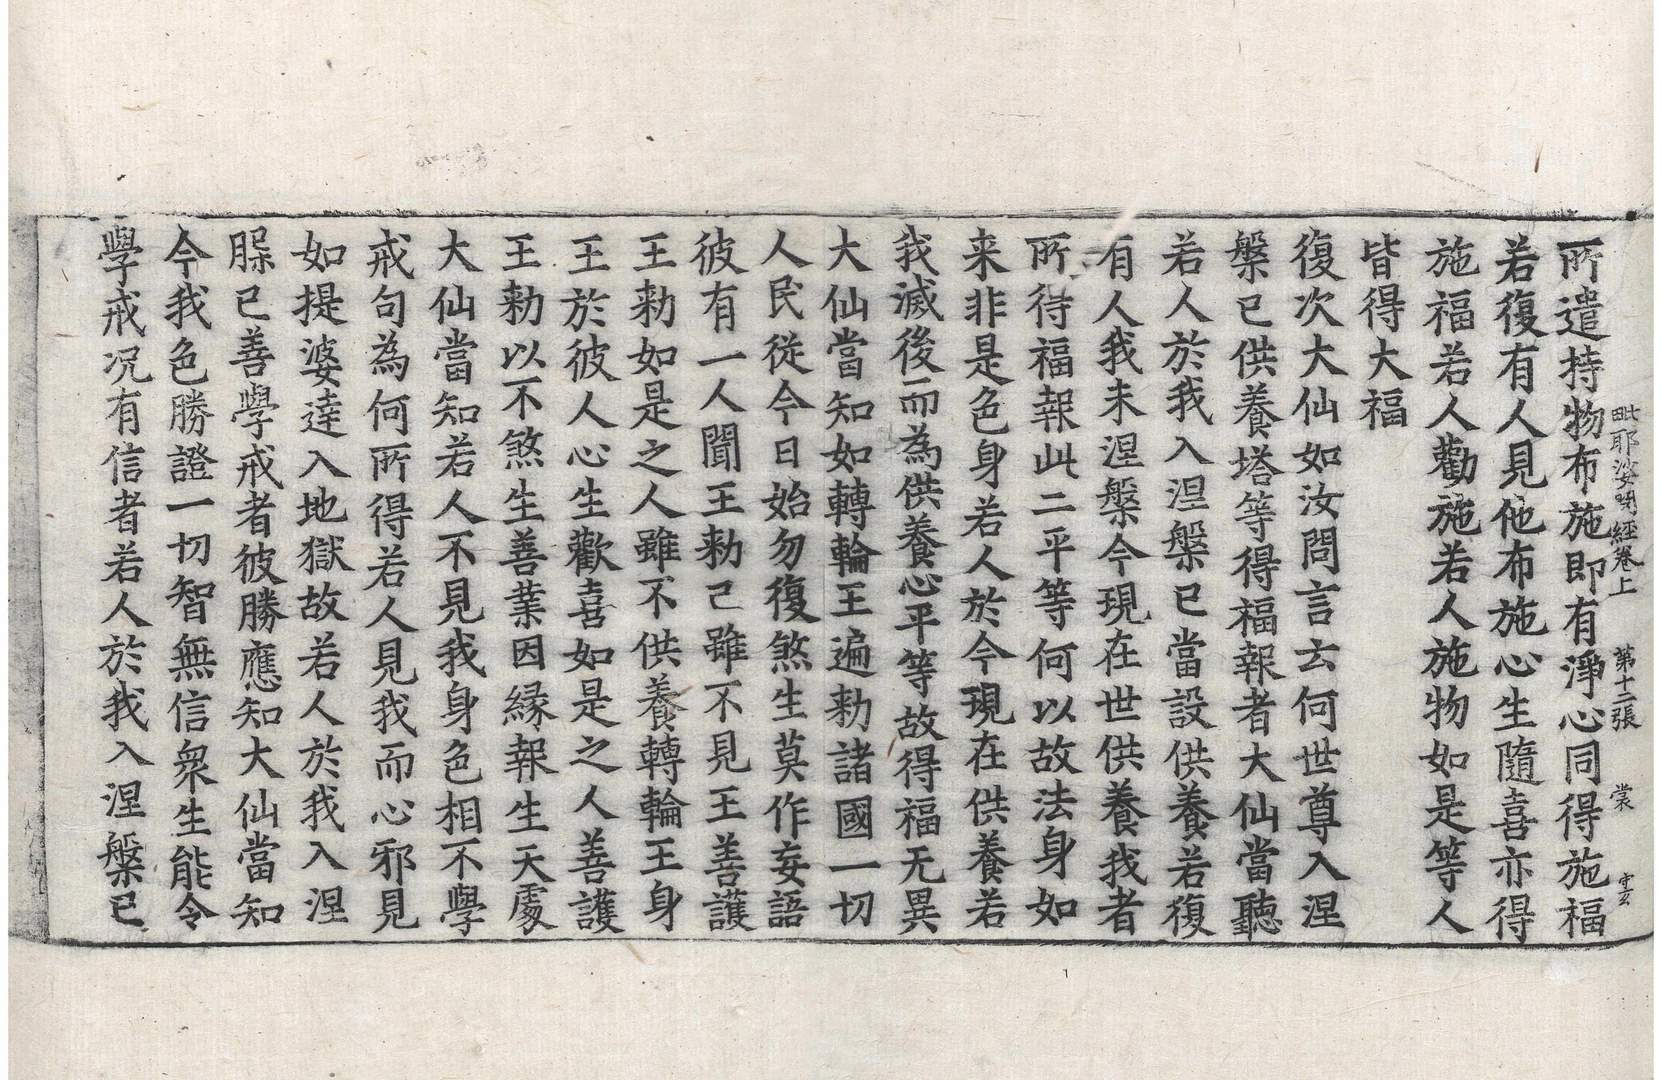 毗耶娑問經卷上 第十二張 裳 雲
所遣持物布施即有淨心同得施福
若復有人見他布施心生隨喜亦得
施福若人勸施若人施物如是等人
皆得大福
復次大仙如汝問言云何世尊入涅
槃已供養塔等得福報者大仙當聽
若人於我入涅槃已當設供養若復
有人我未涅槃今現在世供養我者
所得福報此二平等何以故法身如
来非是色身若人於今現在供養若
我滅後而為供養心平等故得福无異
大仙當知如轉輪王遍勑諸國一切
人民從今日始勿復煞生莫作妄語
彼有一人聞王勑已雖不見王善護
王勑如是之人雖不供養轉輪王身
王於彼人心生歡喜如是之人善護
王勑以不煞生善業因緣報生天處
大仙當知若人不見我身色相不學
戒句為何所得若人見我而心邪見
如提婆達入地獄故若人於我入涅
槃已善學戒者彼勝應知大仙當知
今我色勝證一切智無信衆生能令
學戒况有信者若人於我入涅槃已